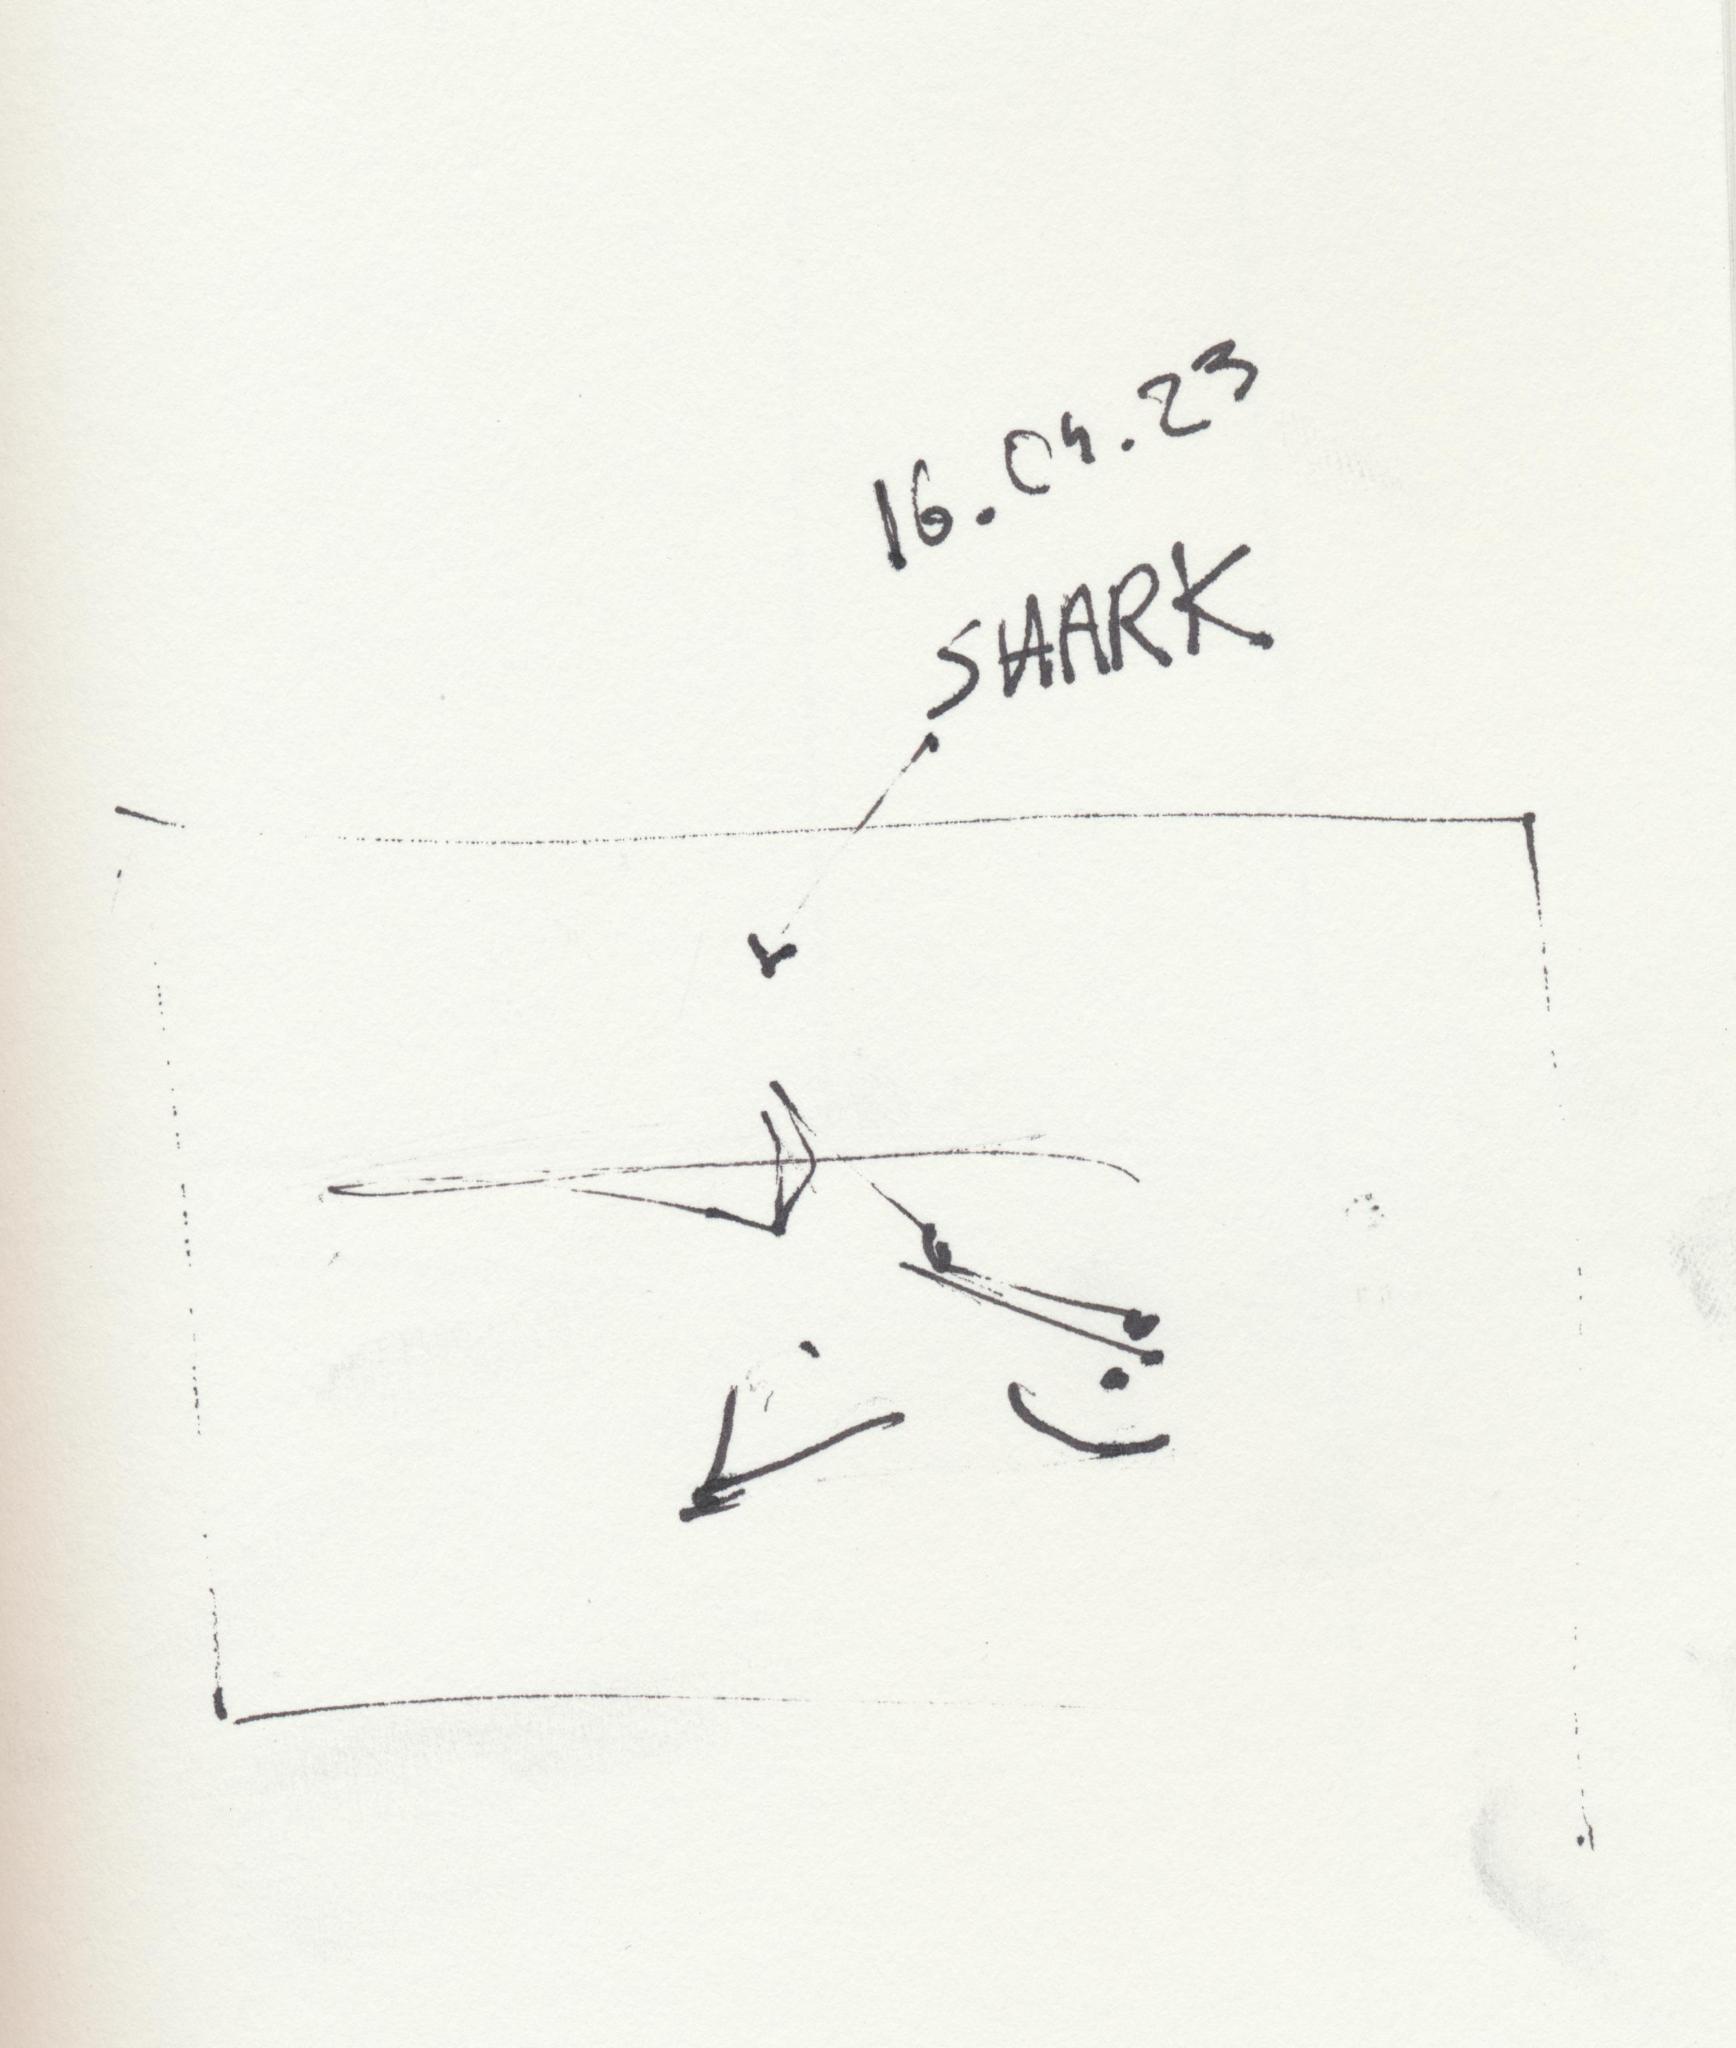 16.04.23
SHARK